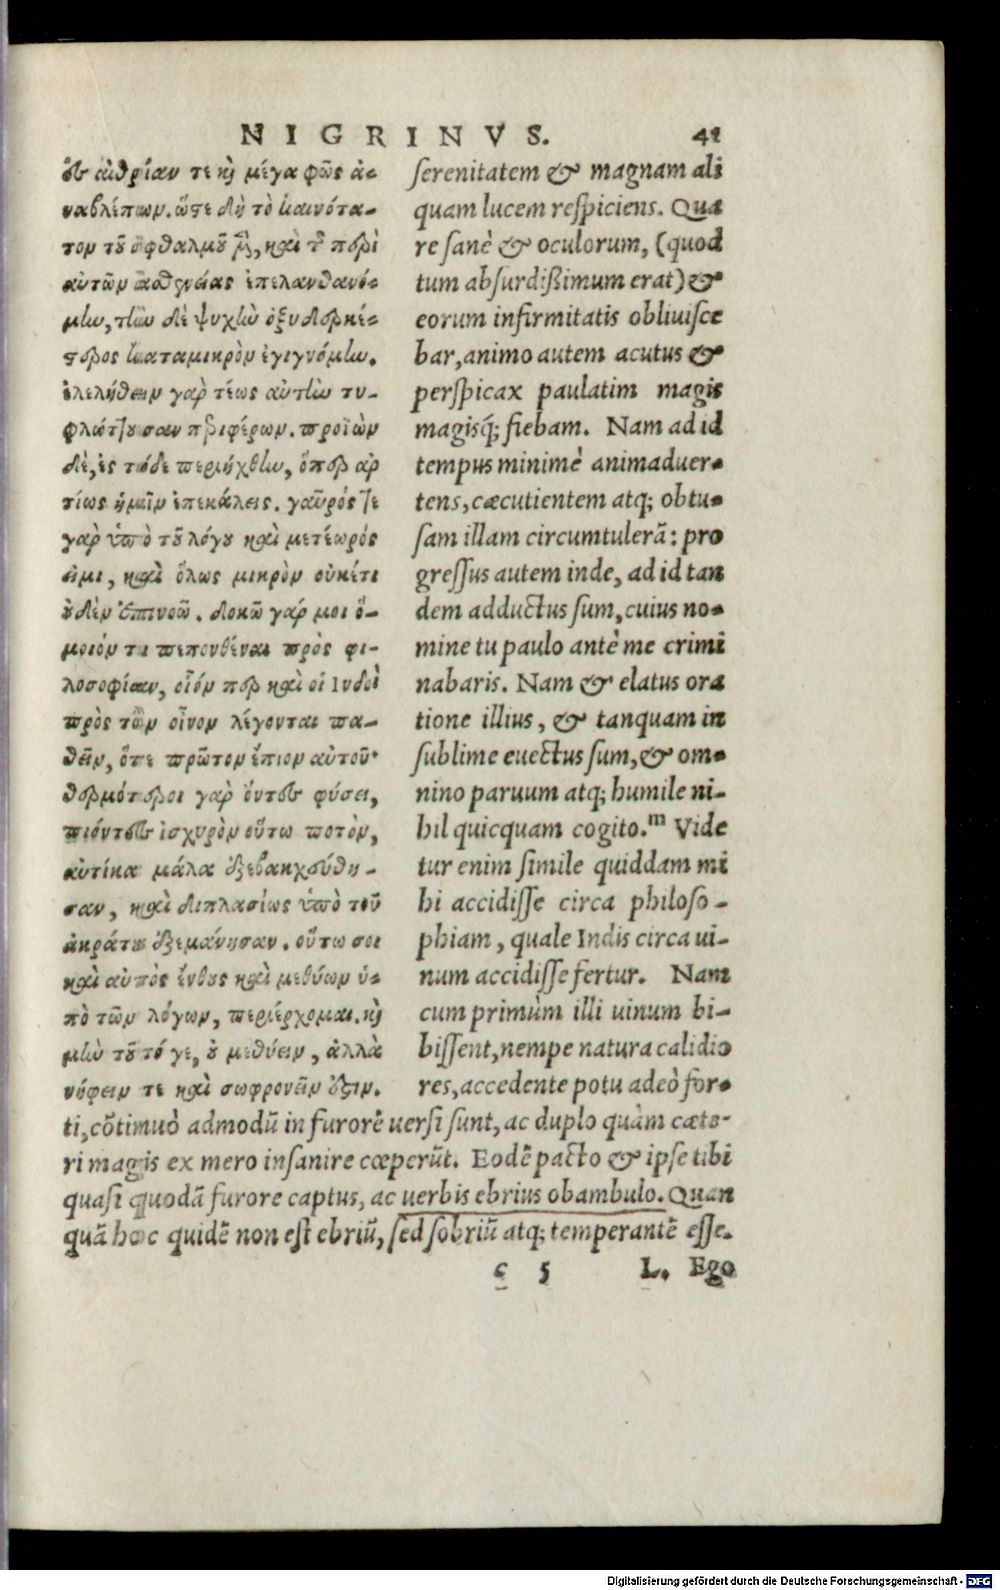 NIGRINVS. 41
ἐς αἰθρίαν τε κὶ μέγα φῶς ἀ-
ναβλέπων. ὥστε δὴ τὸ καινότα-
τον τοῦ ὀφθαλμοῦ μὲν, καὶ τῆς περὶ
αὐτῶν ἀσθενείας ἐπελανθανό-
μην, τὴν δὲ ψυχὴν ὀξυδερκέ-
στερος καταμικρὸν ἐγιγνόμην.
ἐλελήθειν γὰρ τέως αὐτὴν τυ-
φλώττουσαν περιφέρων. προϊὼν
δὲ, ἐς τόδε περιήχθην, ὅπερ ἀρ
τίως ἡμῖν ἐπεκάλεις. γαῦρός τε
γὰρ ὑπὸ τοῦ λόγου καὶ μετέωρός
εἰμι, καὶ ὅλως μικρὸν οὐκέτι
οὐδὲν ἐπινοῶ. δοκῶ γάρ μοι ὅ-
μοιόν τι πεπονθέναι πρὸς φι-
λοσοφίαν, οἷόν περ καὶ οἱ Ινδοὶ
πρὸς τὸν οἶνον λέγονται πα-
θεῖν, ὅτε πρῶτον ἔπιον αὐτοῦ·
θερμότεροι γὰρ ὄντες φύσει,
πιόντες ἰσχυρὸν οὕτω ποτὸν,
αὐτίκα μάλα ἐξεβακχεύθη-
σαν, καὶ διπλασίως ὑπὸ τοῦ
ἀκράτου ἐξεμάνησαν. οὕτω σοι
καὶ αὐτὸς ἔνθους καὶ μεθύων ὑ-
πὸ τῶν λόγων, περιέρχομαι. κὶ
μὴν τοῦτό γε, οὐ μεθύειν, ἀλλὰ
νήφειν τε καὶ σωφρονεῖν ἐςιν.
serenitatem & magnam ali
quam lucem respiciens. Qua
re sanè & oculorum, (quod
tum absurdißimum erat) &
eorum infirmitatis obliuisce
bar, animo autem acutus &
perspicax paulatim magis
magisq; fiebam. Nam ad id
tempus minimè animaduer-
tens, cæcutientem atq; obtu-
sam illam circumtulerã: pro
gressus autem inde, ad id tan
dem adductus sum, cuius no-
mine tu paulo antè me crimi
nabaris. Nam & elatus ora
tione illius, & tanquam in
sublime euectus sum, & om-
nino paruum atq; humile ni-
hil quicquam cogito.m Vide
tur enim simile quiddam mi
hi accidisse circa philoso-
phiam, quale Indis circa ui-
num accidisse fertur. Nam
cum primùm illi uinum bi-
bissent, nempe natura calidio
res, accedente potu adeò for-
ti, cõtinuò admodũ in furorẽ uersi sunt, ac duplo quàm cæte-
ri magis ex mero insanire cœperũt. Eodẽ pacto & ipse tibi
quasi quodã furore captus, ac uerbis ebrius obambulo. Quan
quã hoc quidẽ non est ebriũ, sed sobriũ atq; temperantẽ esse.
c 5 L. Ego
Digitalisierung gefördert durch die Deutsche Forschungsgemeinschaft - DFG